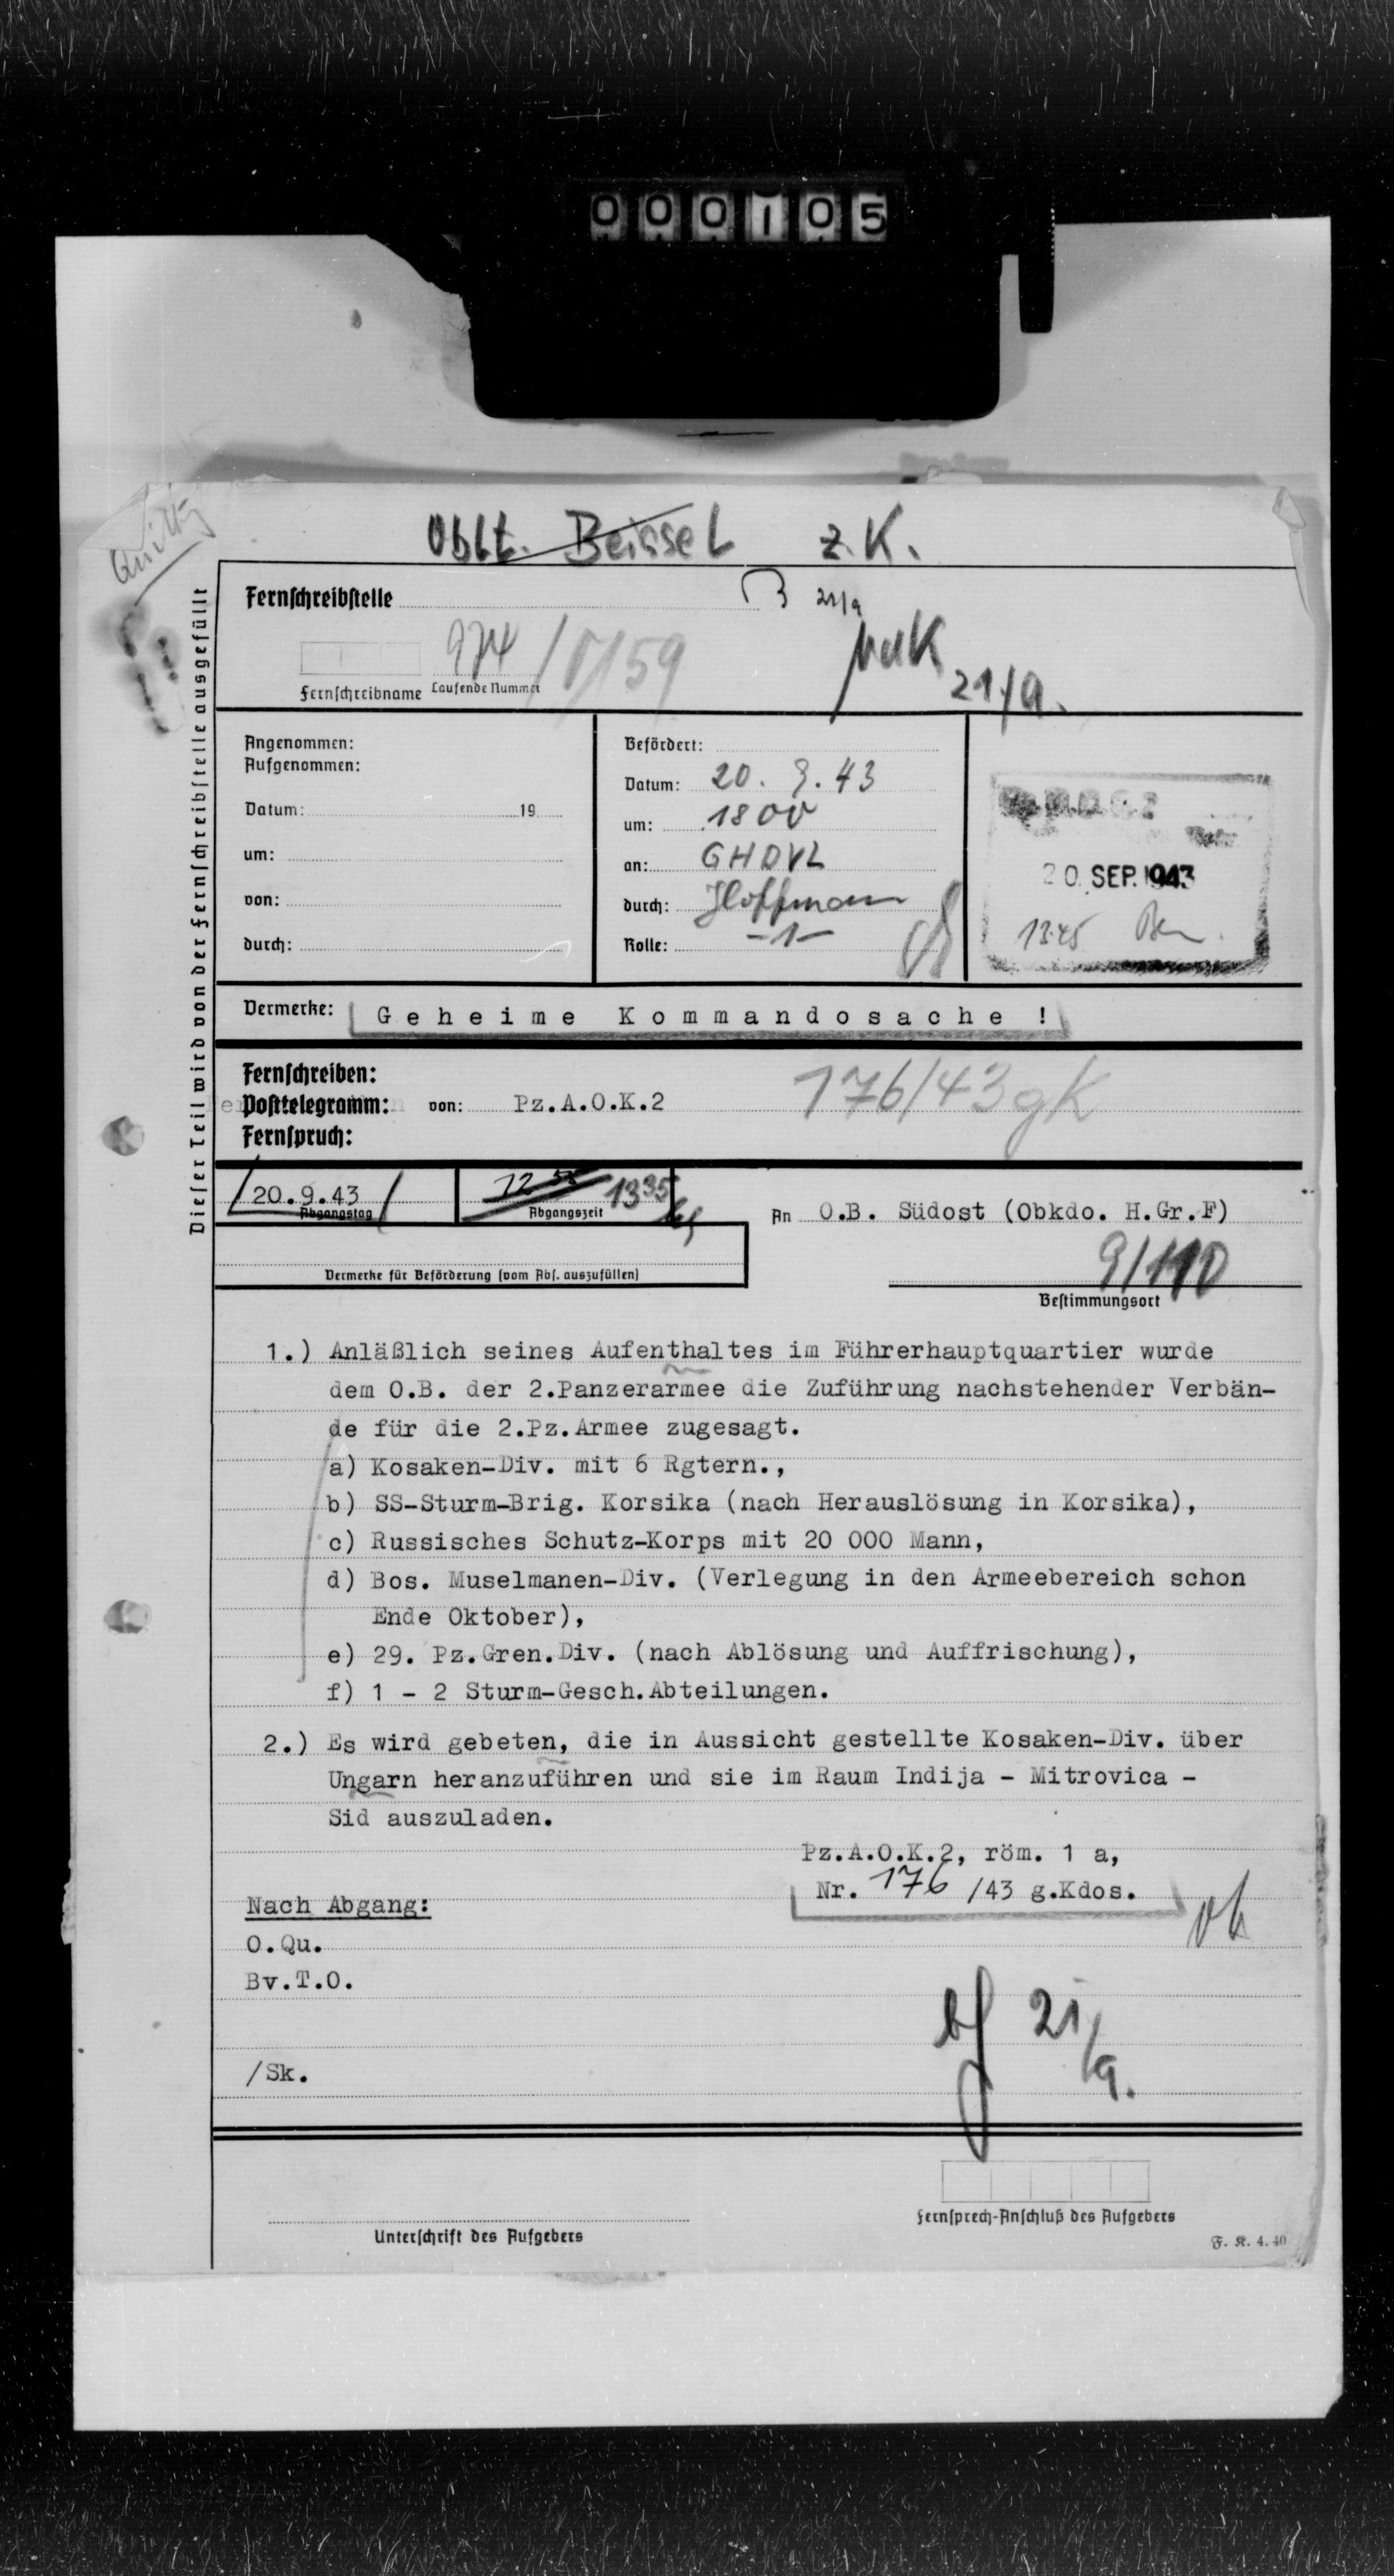 000105
Oblt. Beissel z.K.
Fernschreibstelle
21/9
974
Fernschreibname Laufende Nummer
21/9.
Dieser Teil wird von der Fernschreibstelle ausgefüllt
Angenommen:
Aufgenommen:
Datum: 19
um:
von:
durch:
Befördert:
Datum: 20. 9. 43
um: 1800
an: GHDVL
durch: Hoffmann
Rolle: -1-
20. SEP. 1943
1345
Vermerke: Geheime Kommandosache !
Fernschreiben:
Posttelegramm: von: Pz.A.O.K.2
Fernspruch:
176/43 gK
20.9.43
Abgangstag
1335
Abgangszeit
An O.B. Südost (Obkdo. H.Gr.F)
Vermerke für Beförderung (vom Abs. auszufüllen)
Bestimmungsort
1.) Anläßlich seines Aufenthaltes im Führerhauptquartier wurde
dem O.B. der 2.Panzerarmee die Zuführung nachstehender Verbän-
de für die 2.Pz.Armee zugesagt.
a) Kosaken-Div. mit 6 Rgtern.,
b) SS-Sturm-Brig. Korsika (nach Herauslösung in Korsika),
c) Russisches Schutz-Korps mit 20 000 Mann,
d) Bos. Muselmanen-Div. (Verlegung in den Armeebereich schon
Ende Oktober),
e) 29. Pz.Gren.Div. (nach Ablösung und Auffrischung),
f) 1 - 2 Sturm-Gesch.Abteilungen.
2.) Es wird gebeten, die in Aussicht gestellte Kosaken-Div. über
Ungarn heranzuführen und sie im Raum Indija - Mitrovica -
Sid auszuladen.
Pz.A.O.K.2, röm. 1 a,
Nr. 176 /43 g.Kdos.
Nach Abgang:
O.Qu.
Bv.T.O.
21/9.
/Sk.
Unterschrift des Aufgebers
Fernsprech-Anschluß des Aufgebers
F. K. 4. 40